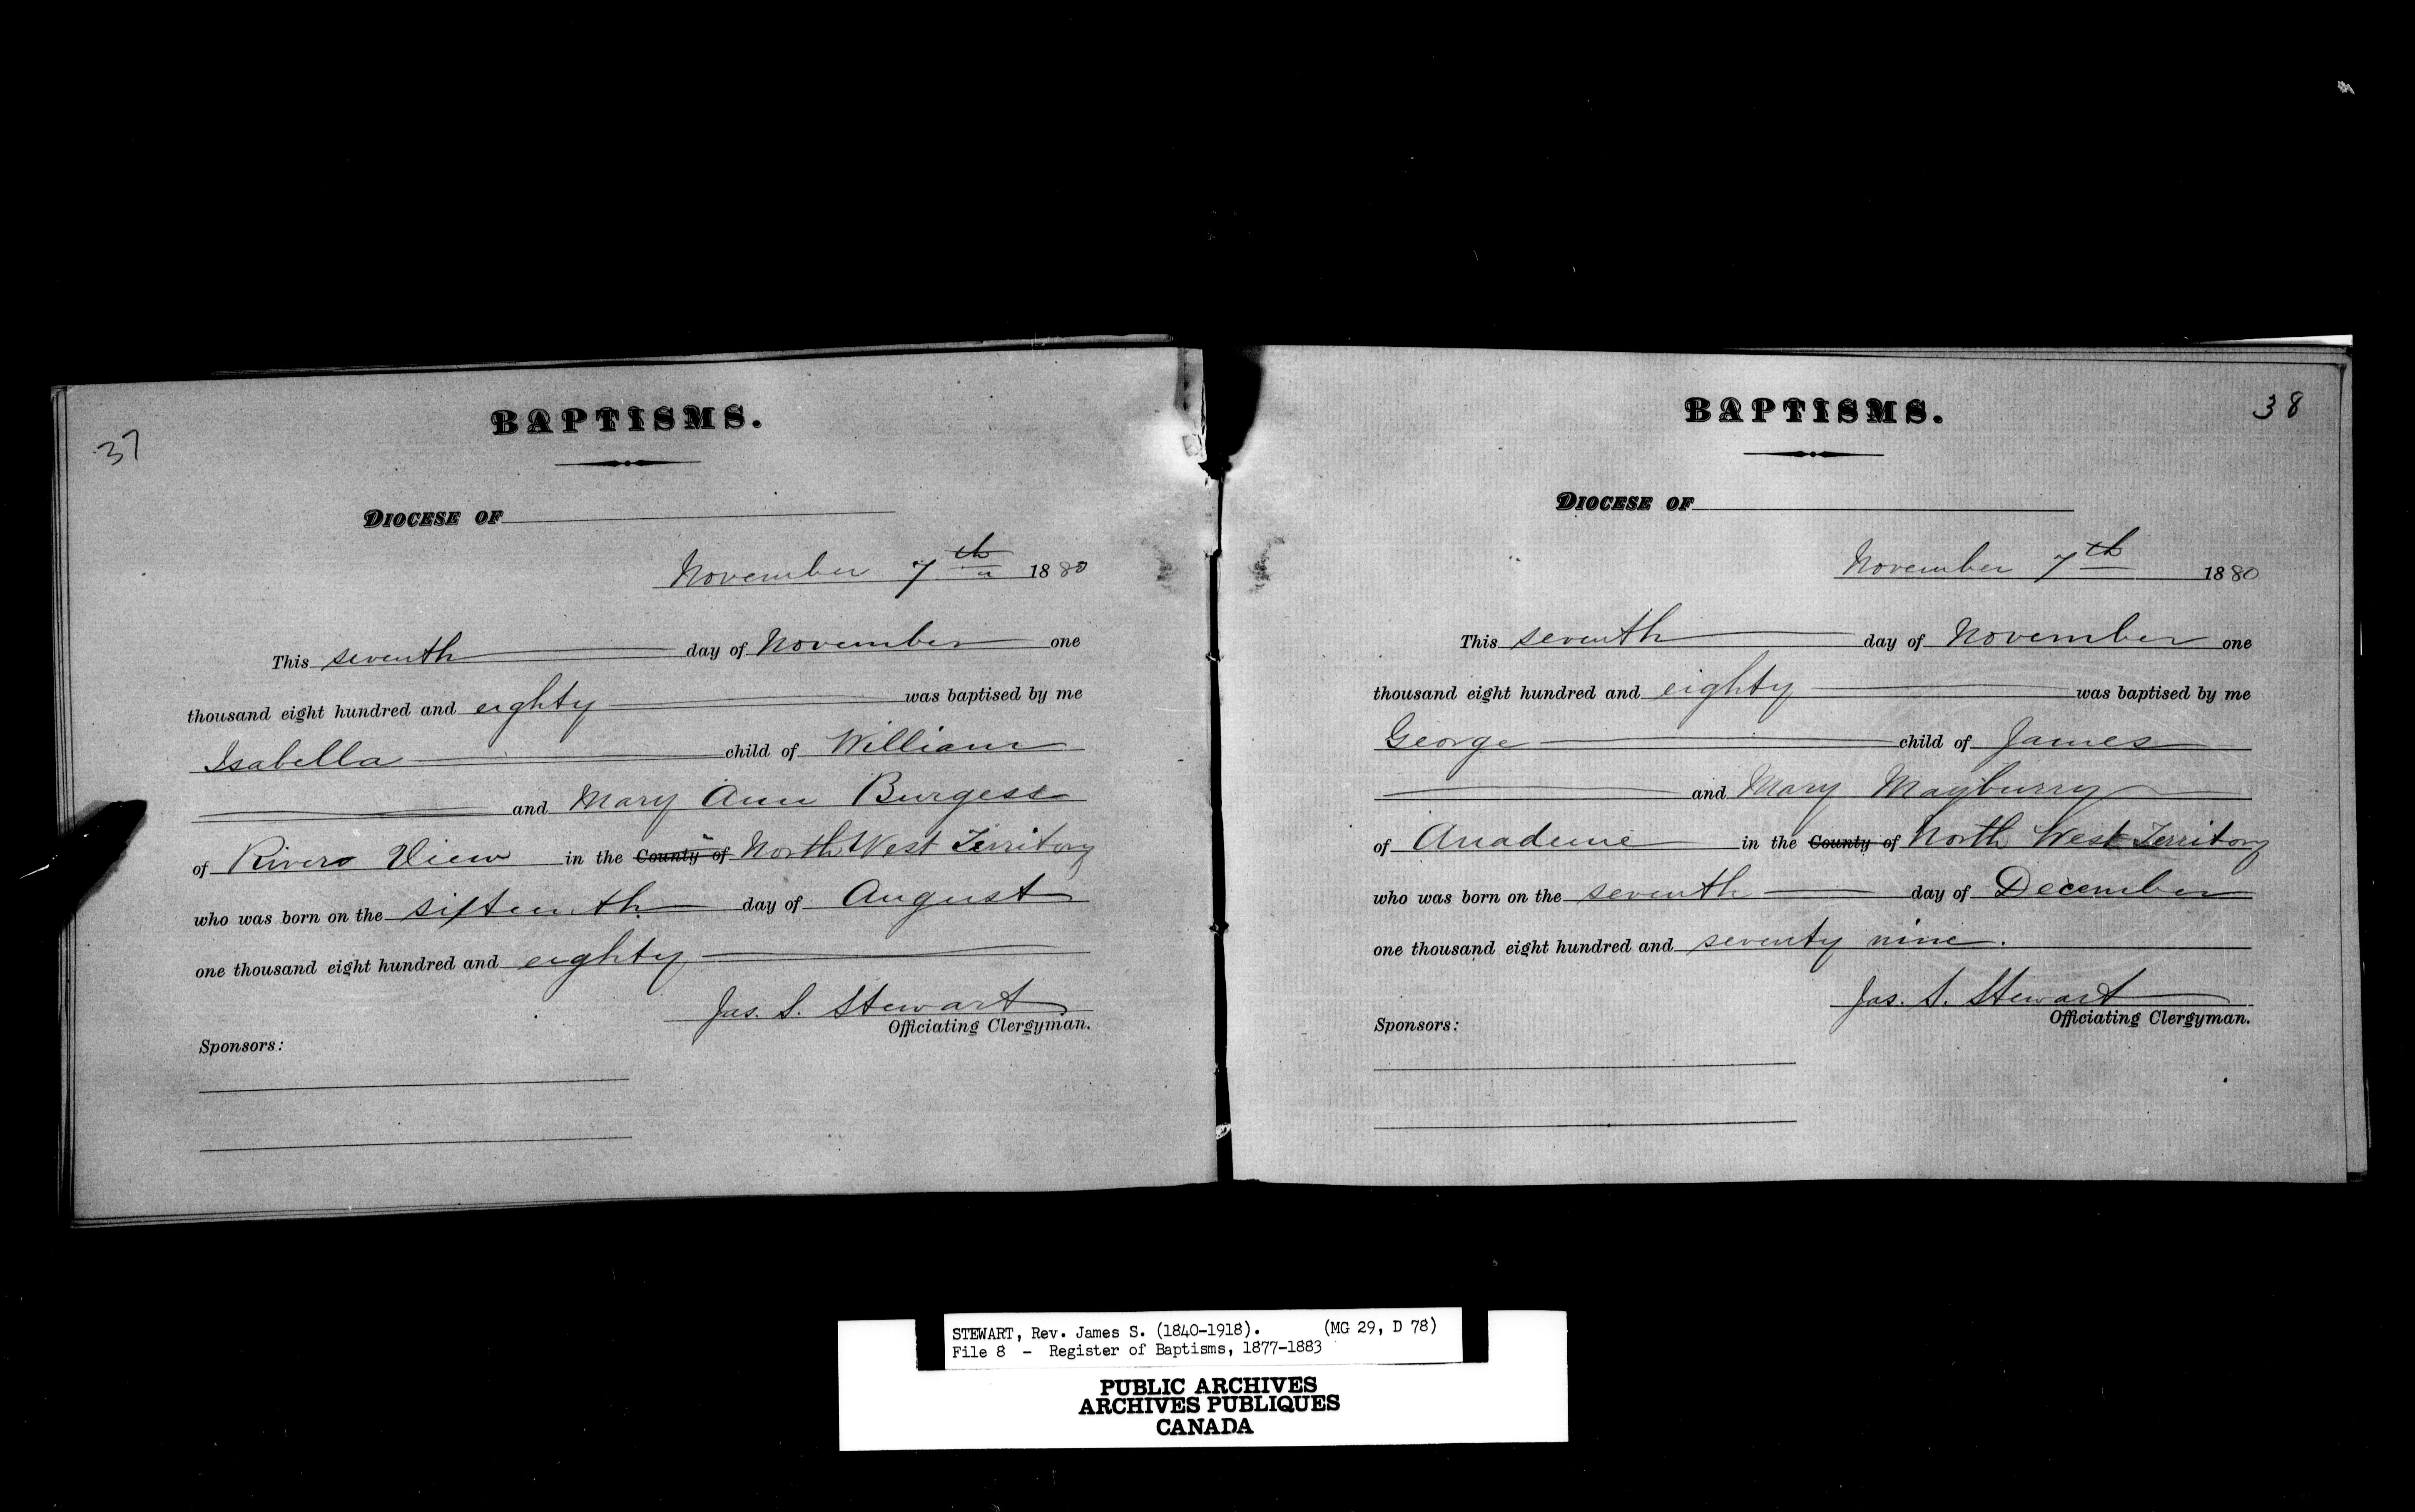 37
BAPTISMS.
DIOCESE OF
November 7th 1880
This seventh day of November one
thousand eight hundred and eighty was baptised by me
Isabella child of William
and Mary Ann Burgess
of Rivers View in the County of North West Territory
who was born on the day of August
one thousand eight hundred and eighty
Jas. S. Stewart
Officiating Clergyman.
Sponsors:
38
BAPTISMS.
DIOCESE OF
November 7th 1880
This seventh day of November one
thousand eight hundred and eighty was baptised by me
George child of James
and Mary Mayburry
of in the County of North West Territory
who was born on the seventh day of December
one thousand eight hundred and seventy nine.
Jas. S. Stewart
Officiating Clergyman.
Sponsors:
STEWART, Rev. James S. (1840-1918). (MG 29, D 78)
File 8 - Register of Baptisms, 1877-1883
PUBLIC ARCHIVES
ARCHIVES PUBLIQUES
CANADA